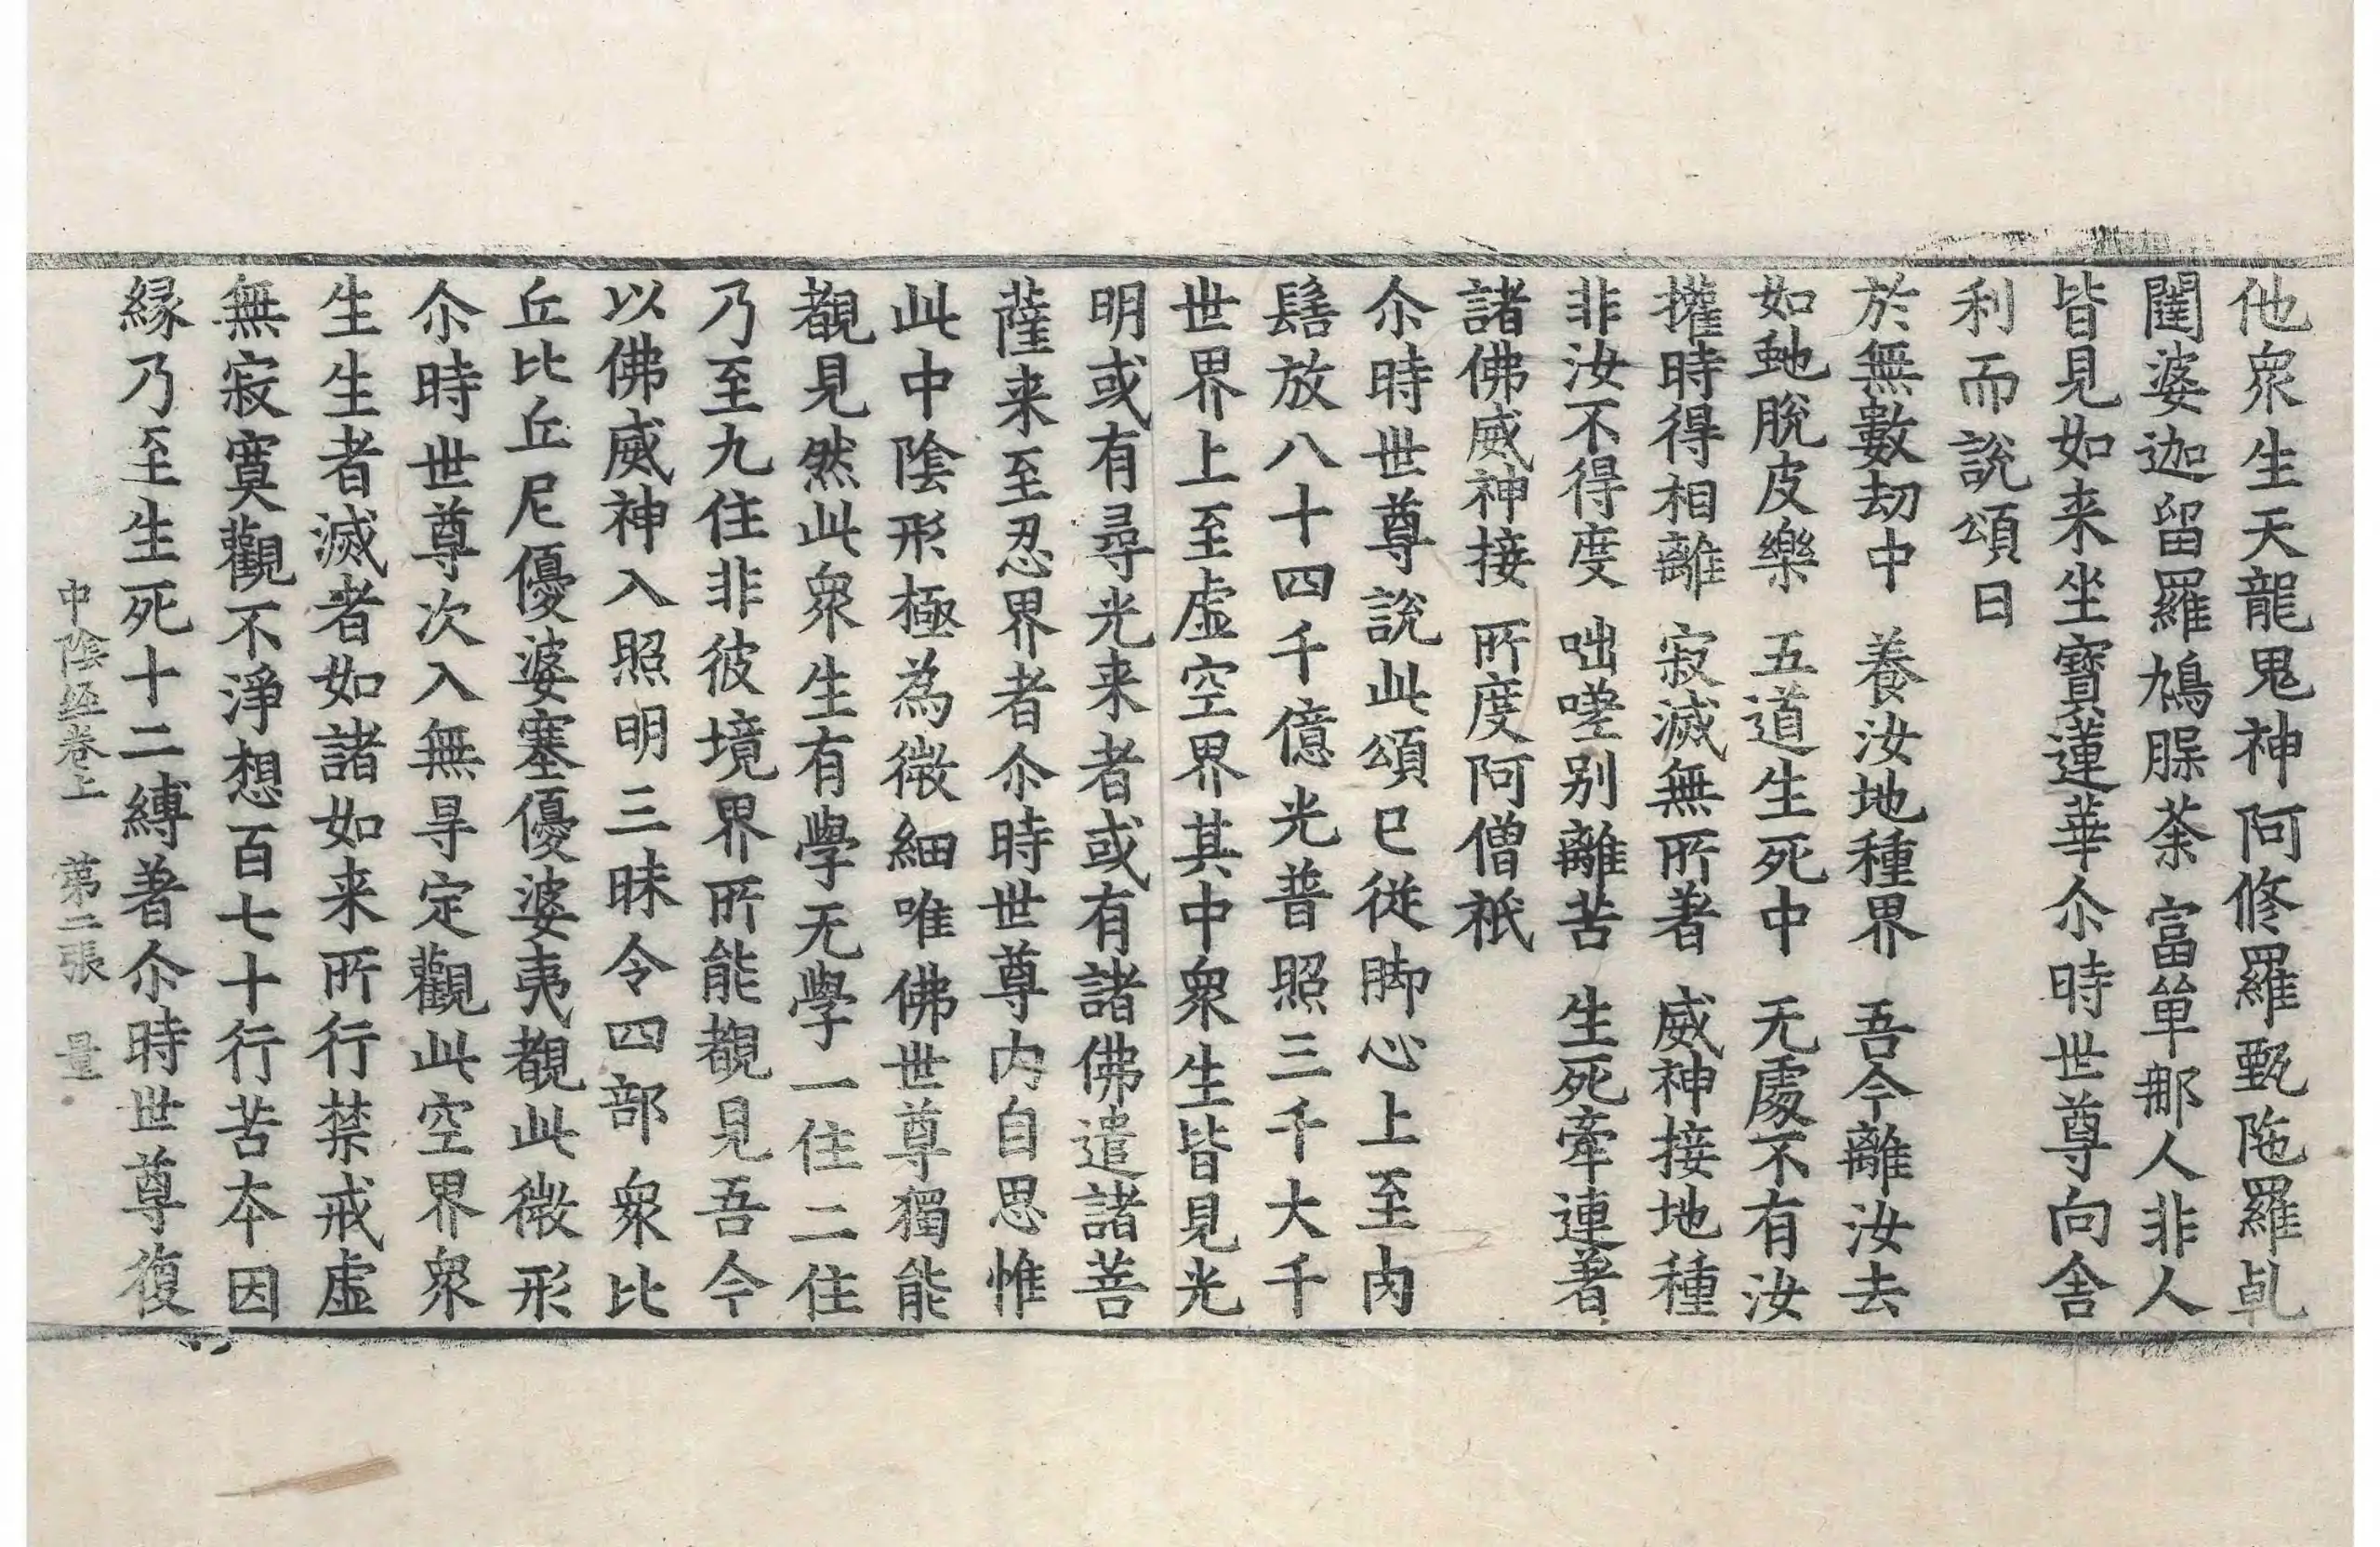 他衆生天龍鬼神阿修羅甄陁羅乹
闥婆迦留羅鳩脲荼富單那人非人
皆見如来坐寶蓮華尒時世尊向舍
利而說頌曰
於無數劫中　養汝地種界　吾今離汝去
如虵脫皮樂　五道生死中　无處不有汝
攉時得相離　寂滅無所著　威神接地種
非汝不得度　咄嗟别離苦　生死牽連著
諸佛威神接　所度阿僧祇
尒時世尊說此頌已從脚心上至肉
髻放八十四千億光普照三千大千
世界上至虛空界其中衆生皆見光
明或有尋光来者或有諸佛遣諸菩
薩来至忍界者尒時世尊内自思惟
此中陰形極為微細唯佛世尊獨能
覩見然此衆生有學无學一住二住
乃至九住非彼境界所能覩見吾今
以佛威神入照明三昧令四部衆比
丘比丘尼優婆塞優婆夷覩此微形
尒時世尊次入無㝵定觀此空界衆
生生者滅者如諸如来所行禁戒虛
無寂寞觀不淨想百七十行苦夲因
縁乃至生死十二縛著尒時世尊復
中陰経卷上　第二張　量